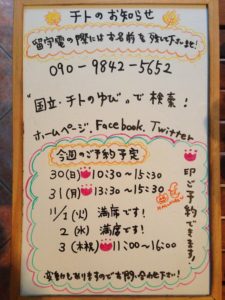 チトのお知らせ
留守電の際にはお名前を残し下さいませ!
090-9842-5652
"国立・チトのゆび"。で検索!
ホームページ、Facebook、Twitter
今週のご予約予定
30(日) 10:30〜15:30
31(月) 13:30〜15:30
11/1(火) 満席です!
2(水) 満席です!
3(木祝) 11:00〜16:00
印ご予約できます!
変動しおりますのでお問い合わせ下さい!